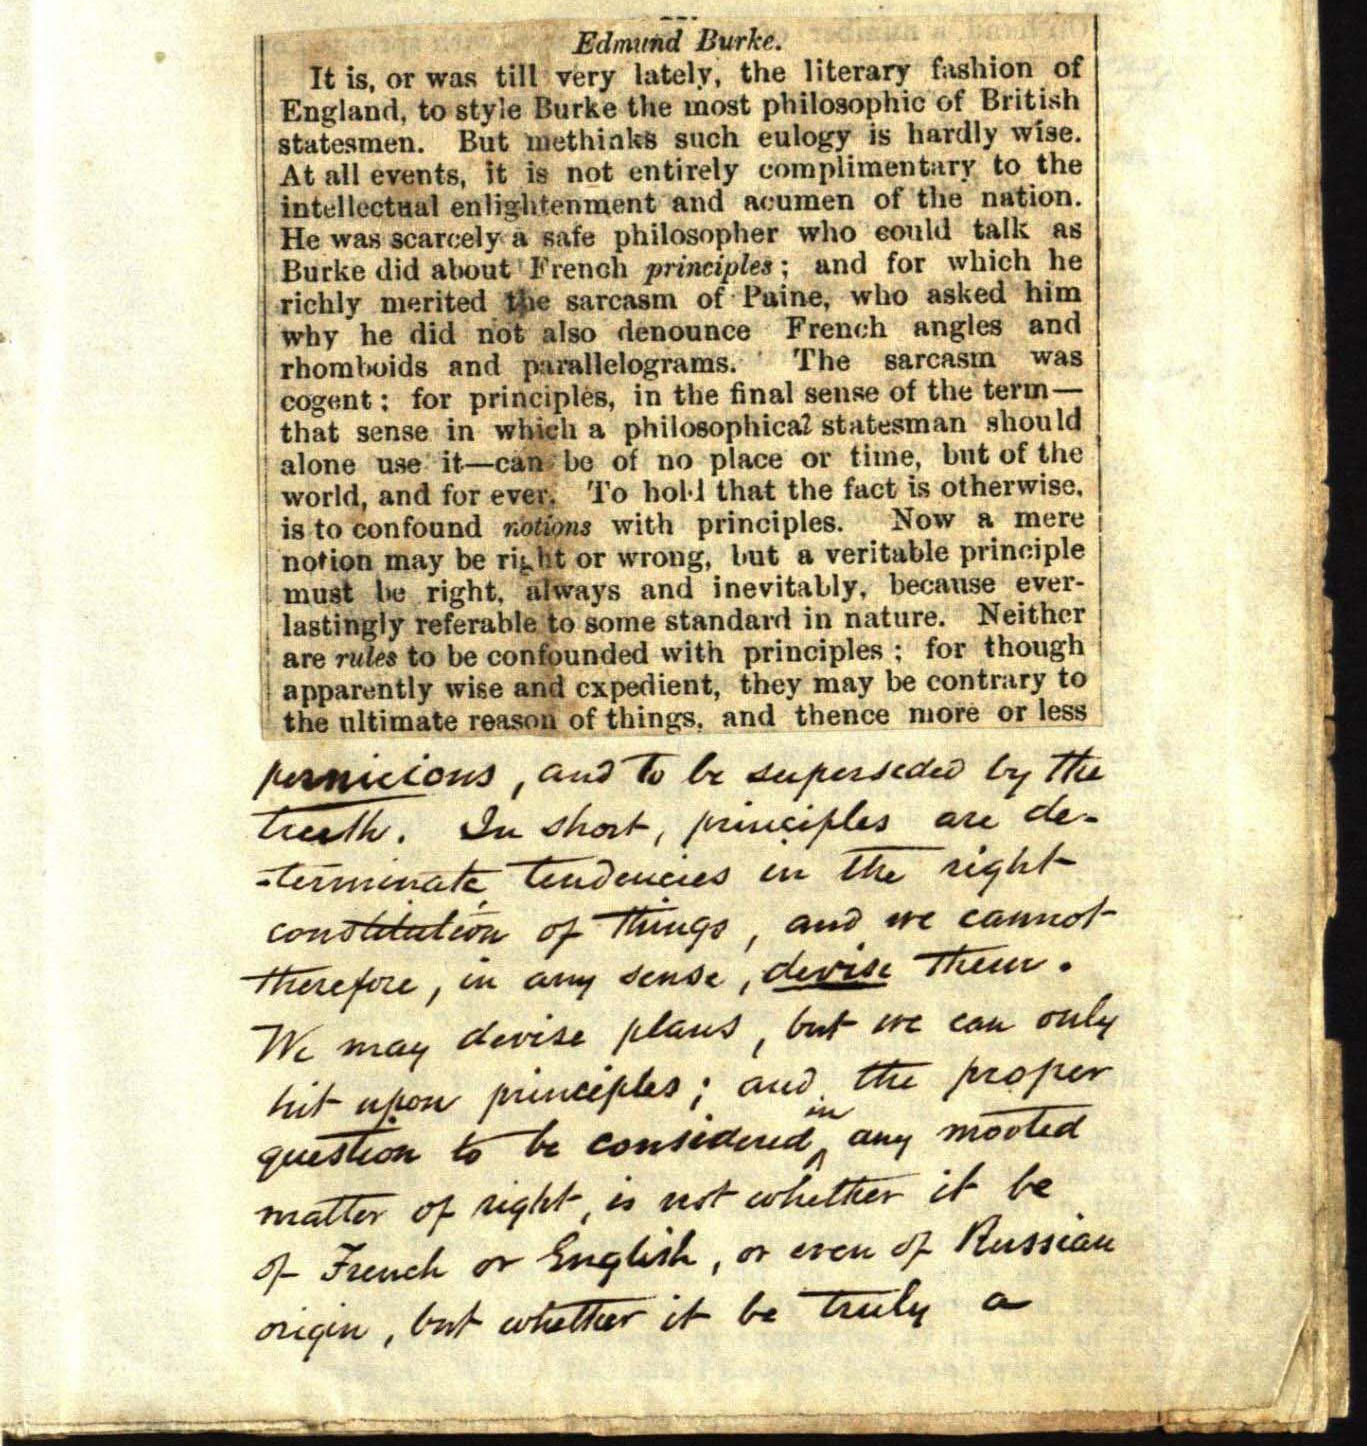 Edmund Burke.
It is, or was till very lately, the literary fashion of
England, to style Burke the most philosophic of British
statesmen. But methinks such eulogy is hardly wise.
At all events, it is not entirely complimentary to the
intellectual enlightenment and acumen of the nation.
He was scarcely a safe philosopher who could talk as
Burke did about French principles; and for which he
richly merited the sarcasm of Paine, who asked him
why he did not also denounce French angles and
rhomboids and parallelograms. The sarcasm was
cogent; for principles, in the final sense of the term—
that sense in which a philosophical statesman should
alone use it—can be of no place or time, but of the
world, and for ever. To hold that the fact is otherwise,
is to confound notions with principles. Now a mere
notion may be right or wrong, but a veritable principle
must be right, always and inevitably, because ever-
lastingly referable to some standard in nature. Neither
are rules to be confounded with principles; for though
apparently wise and expedient, they may be contrary to
the ultimate reason of things, and thence more or less
pernicious, and to be superseded by the
truth. In short, principles are de-
-terminate tendencies in the right
constitution of things, and we cannot
therefore, in any sense, devise them.
We may devise plans, but we can only
hit upon principles; and the proper
question to be considered in any mooted
matter of right, is not whether it be
of French or English, or even of Russian
origin, but whether it be truly a